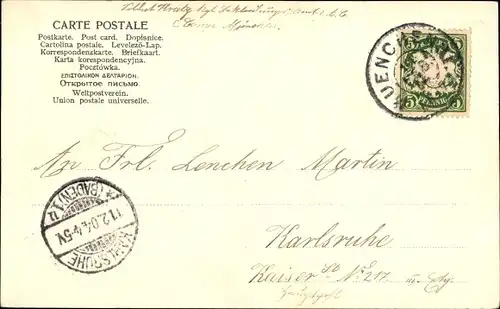 CARTE POSTALE
Postkarte. Post card. Dopisnice.
Cartolina postale. Levelező-Lap.
Korrespondenzkarte. Briefkaart.
Karta korespondencyjna.
Pocztówka.
ΕΠΙΣΤΟΛΙΚΟΝ ΔΕΛΤΑΡΙΟΝ.
Открытое письмо.
Weltpostverein.
Union postale universelle.
MUENCHEN
5 PFENNIG 5
An Frl. Lenchen Martin
KARLSRUHE (BADEN)
11.2.04.4-5V.
Karlsruhe
Kaiser Str. No 217.